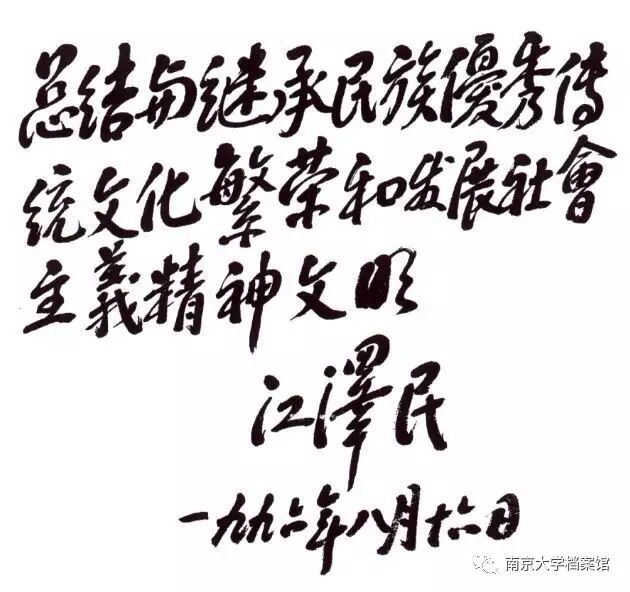 总结与继承民族優秀传
统文化繁荣和发展社會
主義精神文明
江澤民
一九九六年八月十六日
南京大学档案馆